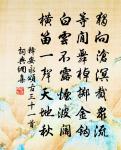 獨向滄溟截眾流
等閒舞棹擲金鉤
白雲不露煙波闊
橫笛一聲天地秋
釋安永頌古三十一首
詞典網集